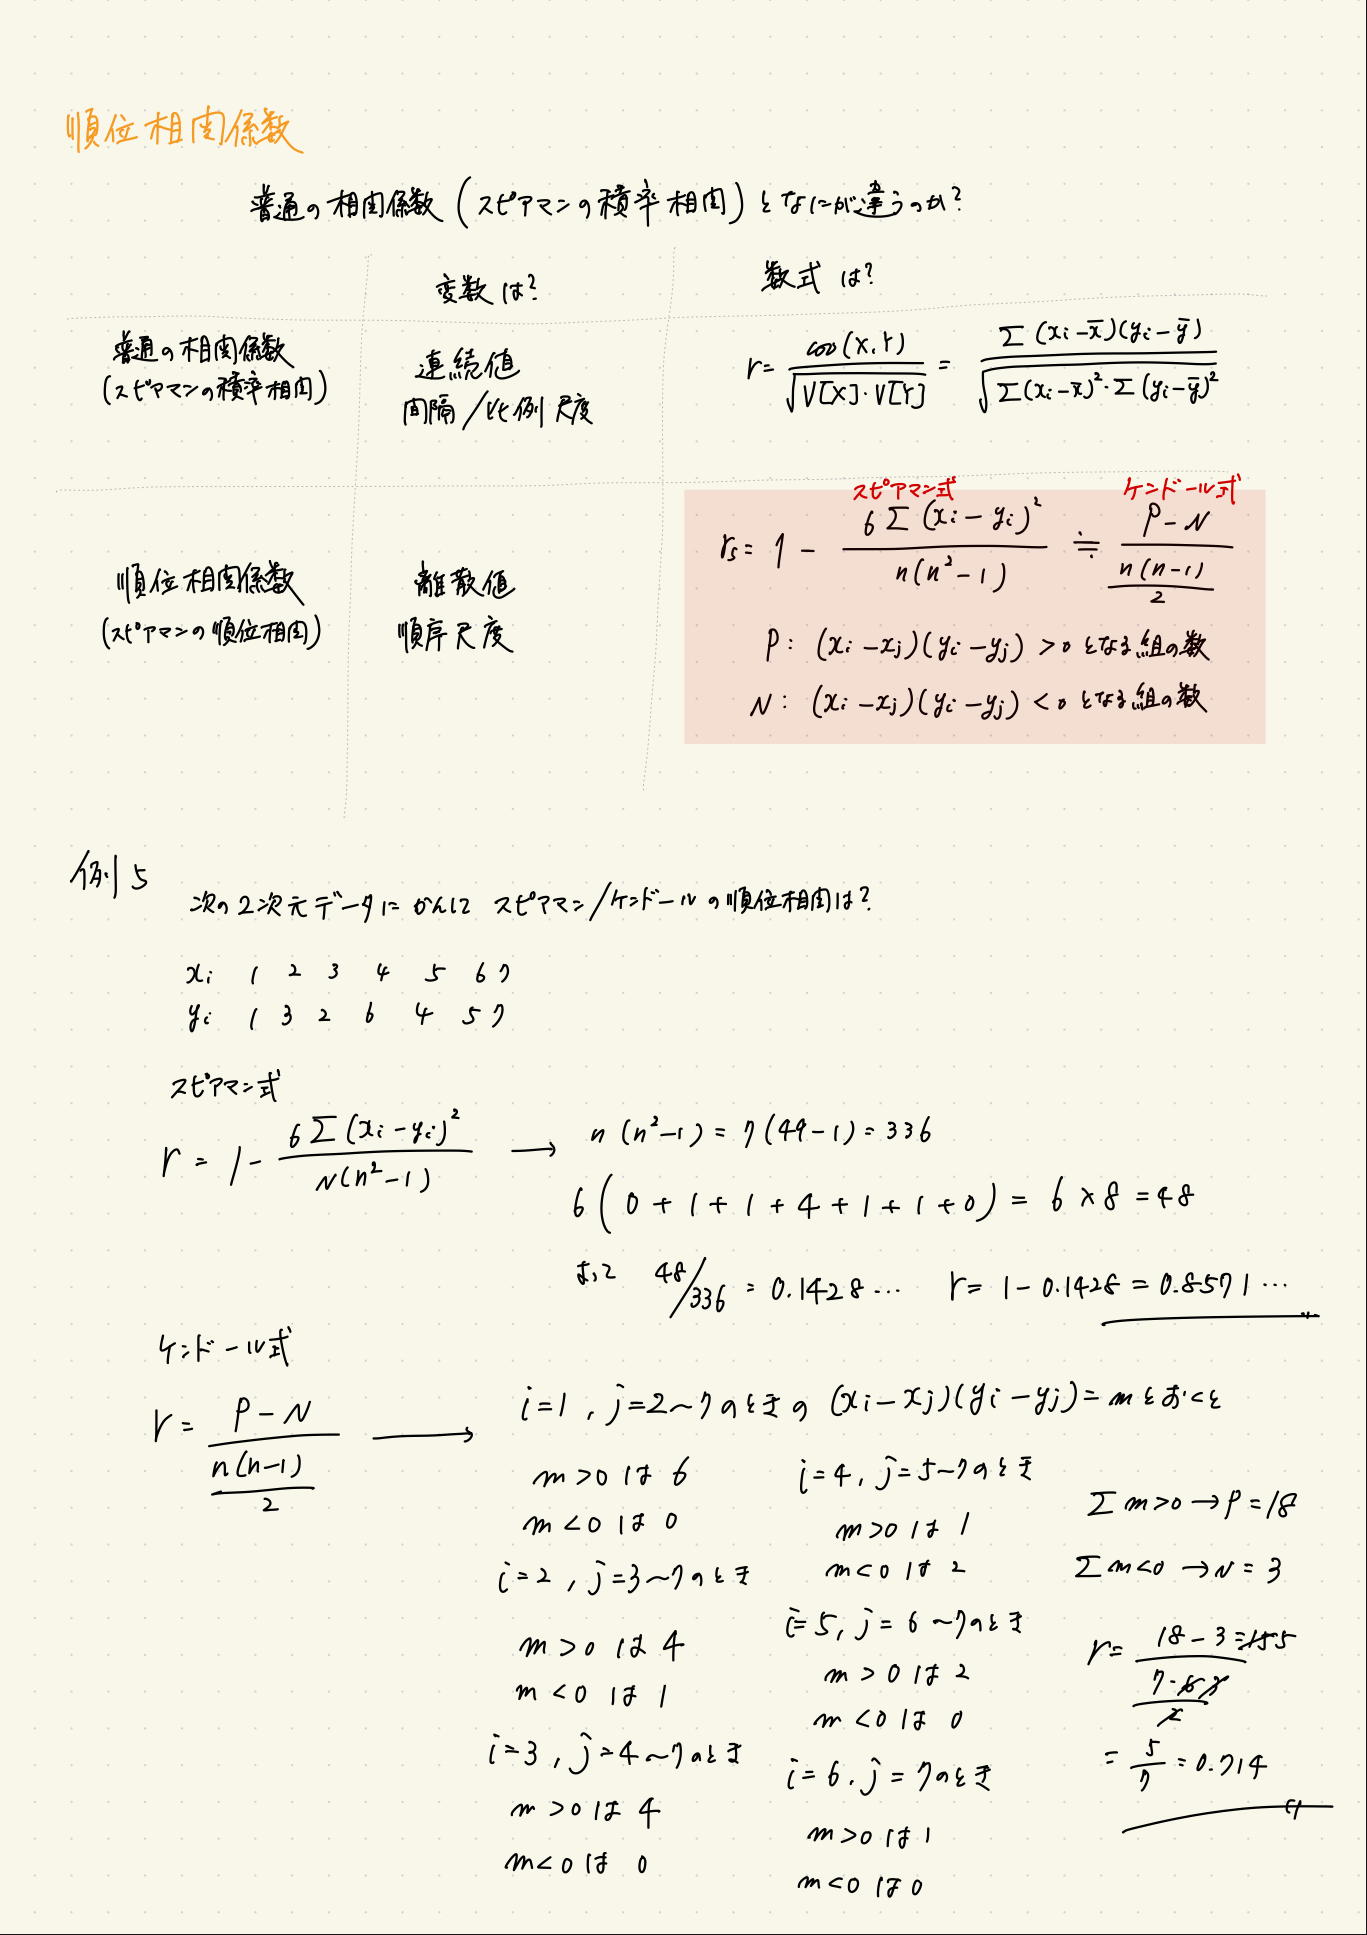 順位相関係数
普通の相関係数（スピアマンの積率相関）となにが違うのか？
変数は？
数式は？
普通の相関係数
（スピアマンの積率相関）
連続値
間隔/比例尺度
r = cov(X,Y) / √V[X]・V[Y] = Σ(xi－x̄)(yi－ȳ) / √Σ(xi－x̄)²・Σ(yi－ȳ)²
順位相関係数
（スピアマンの順位相関）
離散値
順序尺度
スピアマン式
ケンドール式
rs = 1 － 6Σ(xi－yi)² / n(n²－1) ≒ P－N / n(n-1)/2
P： (xi－xj)(yi－yj) >0となる組の数
N： (xi－xj)(yi－yj) <0となる組の数
例5
次の2次元データにかんして スピアマン/ケンドールの順位相関は？
xi 1 2 3 4 5 6 7
yi 1 3 2 6 4 5 7
スピアマン式
r = 1 － 6Σ(xi－yi)² / N(n²－1) → n(n²－1) = 7(49－1) = 336
6(0+1+1+4+1+1+0) = 6×8 = 48
よって 48/336 = 0.1428… r = 1－0.1428 = 0.8571…
ケンドール式
r = P－N / n(n－1)/2 →
i=1, j=2～7のときの (xi－xj)(yi－yj)=mとおくと
m>0は6
m<0は0
i=2, j=3～7のとき
m>0は4
m<0は1
i=3, j=4～7のとき
m>0は4
m<0は0
i=4, j=5～7のとき
m>0は1
m<0は2
i=5, j=6～7のとき
m>0は2
m<0は0
i=6, j=7のとき
m>0は1
m<0は0
Σm>0→P=18
Σm<0→N=3
r = 18－3=15 5 / 7・6 3/2
= 5/7 = 0.714